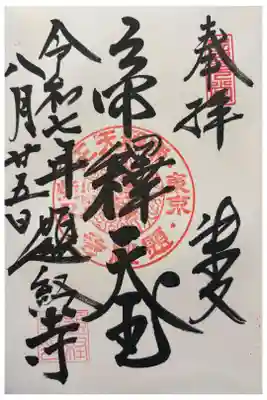 奉拝
柴又
帝釋天王
令和七年
八月廿五日
題経寺
東京